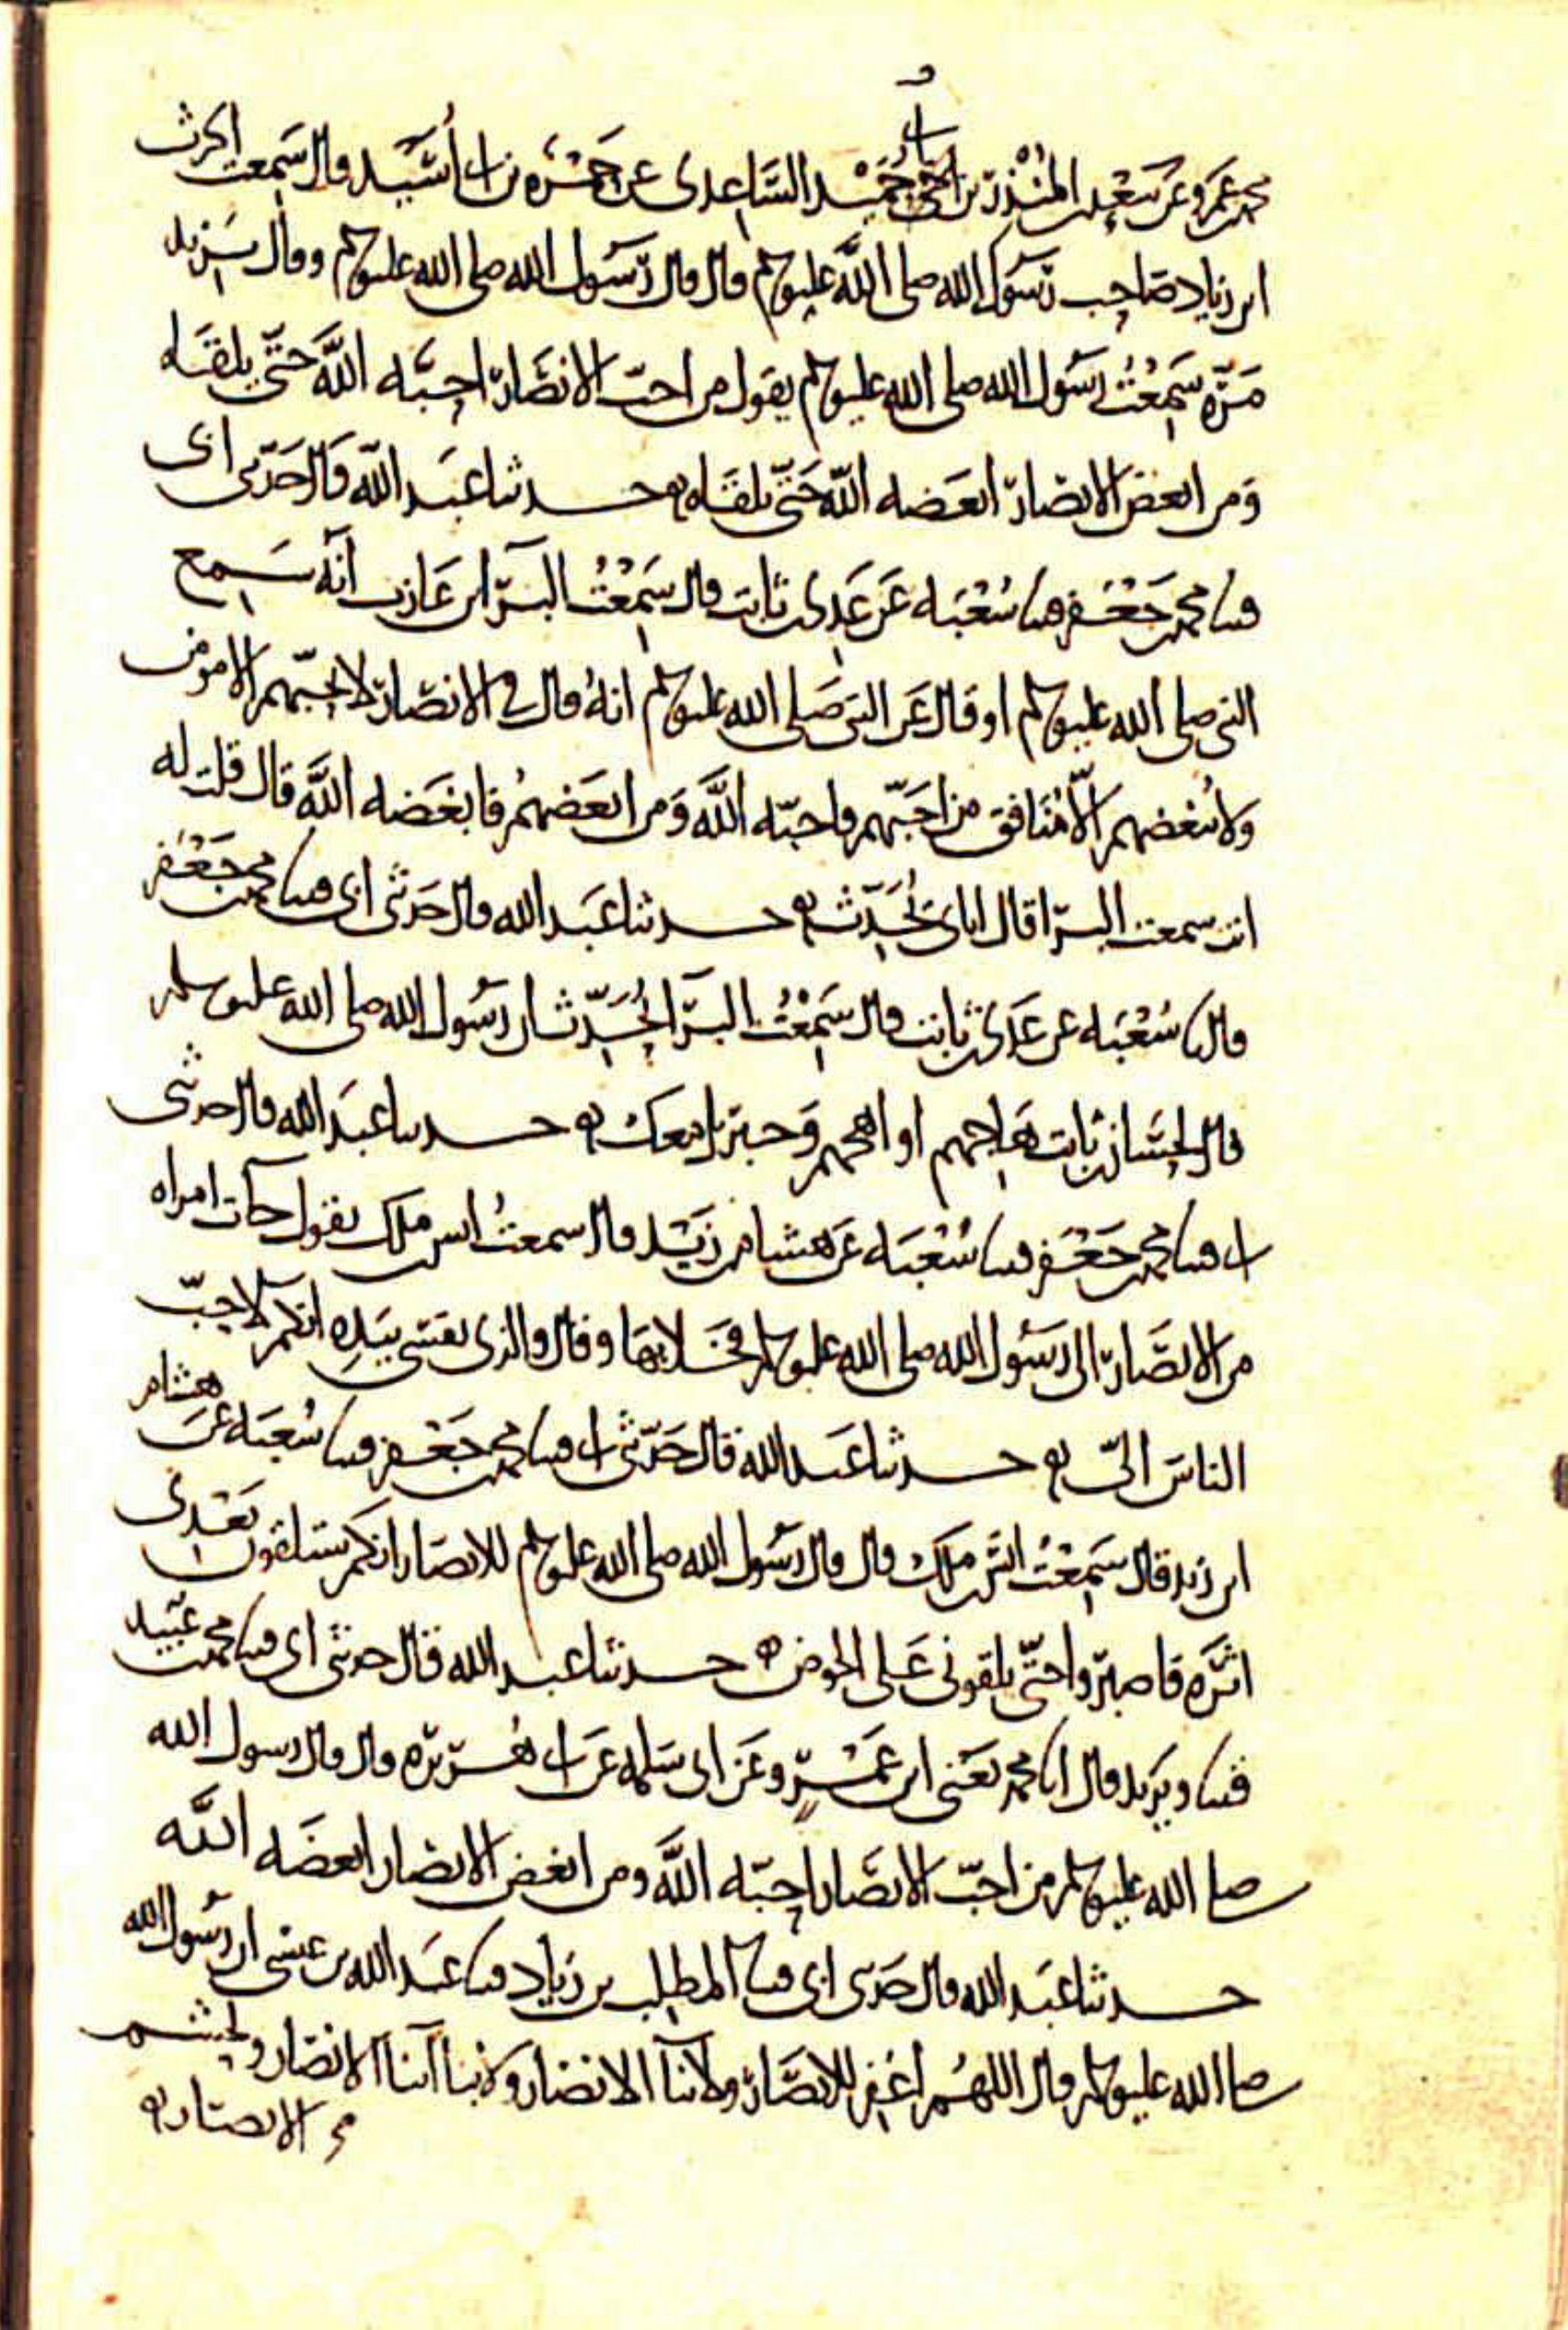 محمد بن عمرو عن سعد بن المنذر بن أبي حميد الساعدي عن حمزة بن أبي أسيد قال سمعت الحرث
ابن زياد صاحب رسول الله صلى الله عليه وسلم قال قال رسول الله صلى الله عليه وسلم وقال يزيد
مرة سمعت رسول الله صلى الله عليه وسلم يقول من احب الانصار احبه الله حتى يلقاه
ومن ابغض الانصار ابغضه الله حتى يلقاه حدثنا عبد الله قال حدثني ابي
قثنا محمد بن جعفر قثنا شعبه عن عدي بن ثابت قال سمعت البرا بن عازب انه سمع
النبي صلى الله عليه وسلم او قال عن النبي صلى الله عليه وسلم انه قال في الانصار لا يحبهم الا مومن
ولا يبغضهم الا منافق من احبهم فاحبه الله ومن ابغضهم فابغضه الله قال قلت له
انت سمعت البرا قال اياي يحدث حدثنا عبد الله قال حدثني ابي قثنا محمد بن جعفر
قال نا شعبه عن عدي بن ثابت قال سمعت البرا يحدث ان رسول الله صلى الله عليه وسلم
قال لحسان بن ثابت هاجهم او اهجهم وجبريل معك حدثنا عبد الله قال حدثني
ابي قثنا محمد بن جعفر قثنا شعبه عن هشام بن زيد قال سمعت انس بن ملك يقول جات امراه
من الانصار الى رسول الله صلى الله عليه وسلم فخلا بها وقال والذي نفسي بيده انكم لاحب
الناس الي حدثنا عبد الله قال حدثني ابي قثنا محمد بن جعفر قثنا شعبه عن هشام
ابن زيد قال سمعت انس بن ملك قال قال رسول الله صلى الله عليه وسلم للانصار انكم ستلقون بعدي
اثره فاصبروا حتى تلقوني على الحوض حدثنا عبد الله قال حدثني ابي قثنا محمد بن عبيد
قثنا ويزيد قال انا محمد يعني ابن عمرو عن ابي سلمه عن ابي هريره قال قال رسول الله
صلى الله عليه وسلم من احب الانصار احبه الله ومن ابغض الانصار ابغضه الله
حدثنا عبد الله قال حدثني ابي قثنا المطلب بن زياد قثنا عبد الله بن عيسى ان رسول الله
صلى الله عليه وسلم قال اللهم اغفر للانصار ولابنا الانصار ولابنا ابنا الانصار ولحشم
الانصار